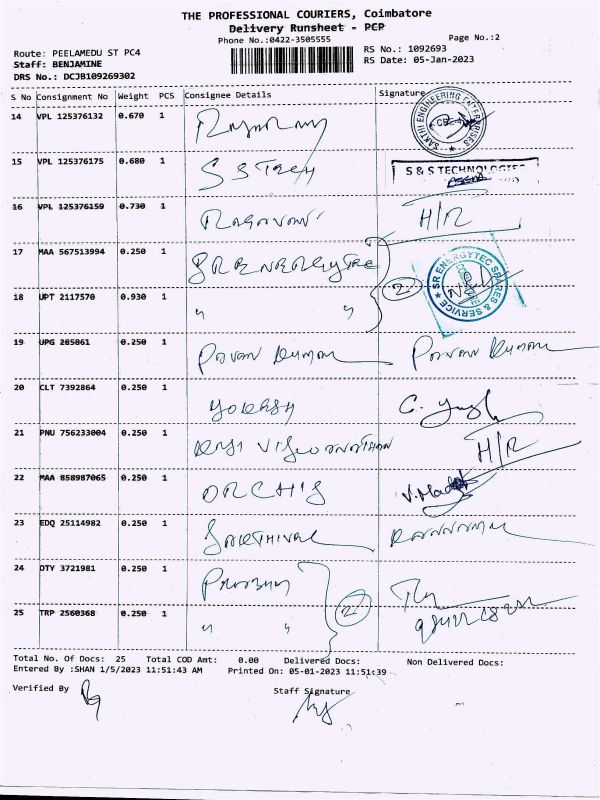 THE PROFESSIONAL COURIERS, Coimbatore
Delivery Runsheet - PCP
Phone No.:0422-3505555
Page No.:2
Route: PEELAMEDU ST PC4
RS No.: 1092693
Staff: BENJAMINE
RS Date: 05-Jan-2023
DRS No.: DCJB109269302
S No Consignment No Weight PCS Consignee Details Signature
14 VPL 125376132 0.670 1
SAKTHI ENGINEERING ENTERPRISES
CBE-4
15 VPL 125376175 0.680 1 S S Tech S & S TECHNOLOGIES
16 VPL 125376159 0.730 1 H/R
17 MAA 567513994 0.250 1 2
SR ENERGYTEC SPARES & SERVICE
18 UPT 2117570 0.930 1 " "
19 UPG 285861 0.250 1 Pavan Kumar Pavan Kumar
20 CLT 7392864 0.250 1
21 PNU 756233004 0.250 1 H/R
22 MAA 858987065 0.250 1
23 EDQ 25114982 0.250 1 Sakthivel
24 OTY 3721981 0.250 1 Prabhu 2
25 TRP 2560368 0.250 1 " "
Total No. Of Docs: 25 Total COD Amt: 0.00 Delivered Docs: Non Delivered Docs:
Entered By :SHAN 1/5/2023 11:51:43 AM Printed On: 05-01-2023 11:51:39
Verified By Staff Signature